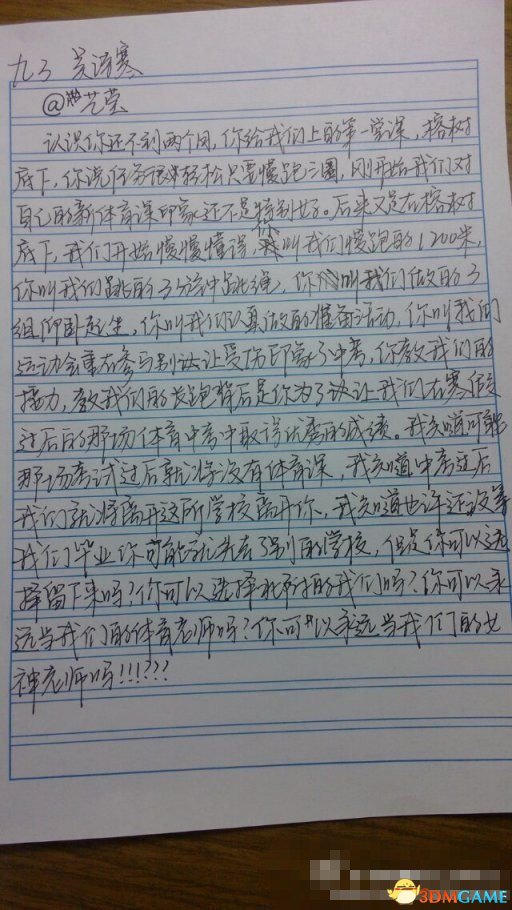 九3 吴诗寒
@ 艺莹
认识你还不到两个月,你给我们上的第一堂课,榕树
底下,你说任务很轻松只要慢跑三圈,刚开始我们对
自己的新体育课印象还不是特别好。后来又是在榕树
底下,我们开始慢慢懂得,你叫我们慢跑的1200米,
你叫我们跳的3分钟跳绳,你叫我们做的3
组仰卧起坐,你叫我们认真做的准备活动,你叫我们
运动会重在参与别让受伤影响了中考,你教我们的
接力,教我们的长跑背后是你为了让我们在寒假
过后的那场体育中考中取得优秀的成绩。我知道可能
那场考试过后就将没有体育课,我知道中考过后
我们就将离开这所学校离开你,我知道也许还没等
我们毕业你可能就先去了别的学校,但是你可以选
择留下来吗?你可以选择水印的我们吗?你可以永
远当我们的体育老师吗?你可以永远当我们的女
神老师吗!!!???
3DMGAME